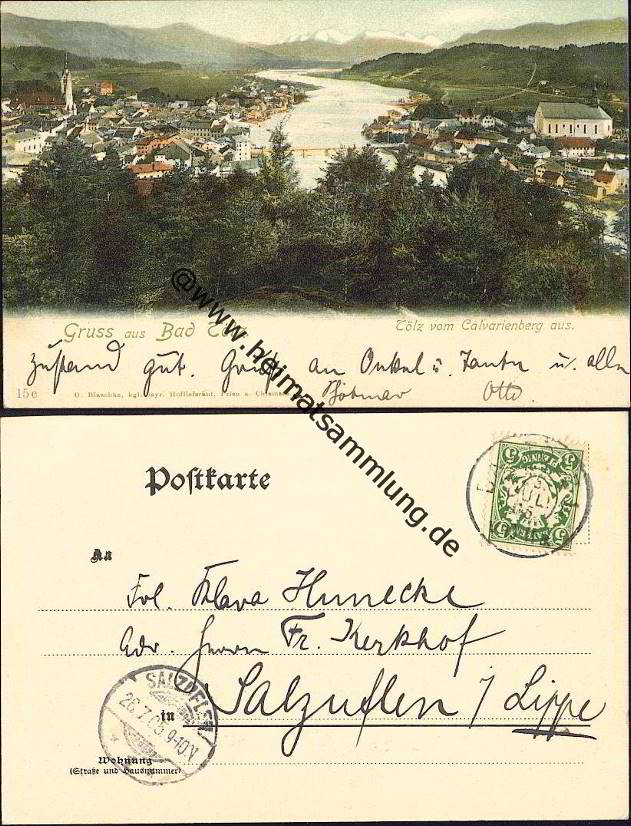 Gruss aus Bad Tölz.
Tölz vom Calvarienberg aus.
Zustand gut. Grüße an Onkel u. Tante u. alle
15c O. Blaschke, kgl. bayr. Hoflieferant, Prien a. Chiemsee
Otto.
@www.heimatsammlung.de
Postkarte
5
JUL
An
Frl. Klara Hunecke
Adr. Herrn Fr. Kerkhof
in Salzuflen / Lippe
SALZUFLEN
26.7.05.9-10V
Wohnung
(Straße und Hausnummer)